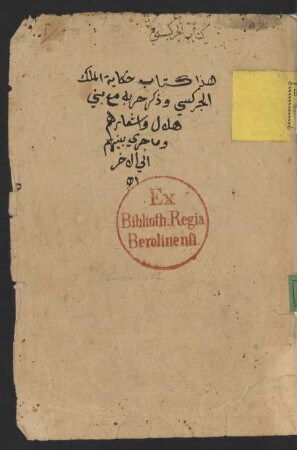 كتاب الجركسي
هذا كتاب حكاية الملك
الجركسي وذكر حربه مع بني
هلال واشعارهم
وما جرى بينهم
الى الاخر
Ex
Biblioth. Regia
Berolinenſi.